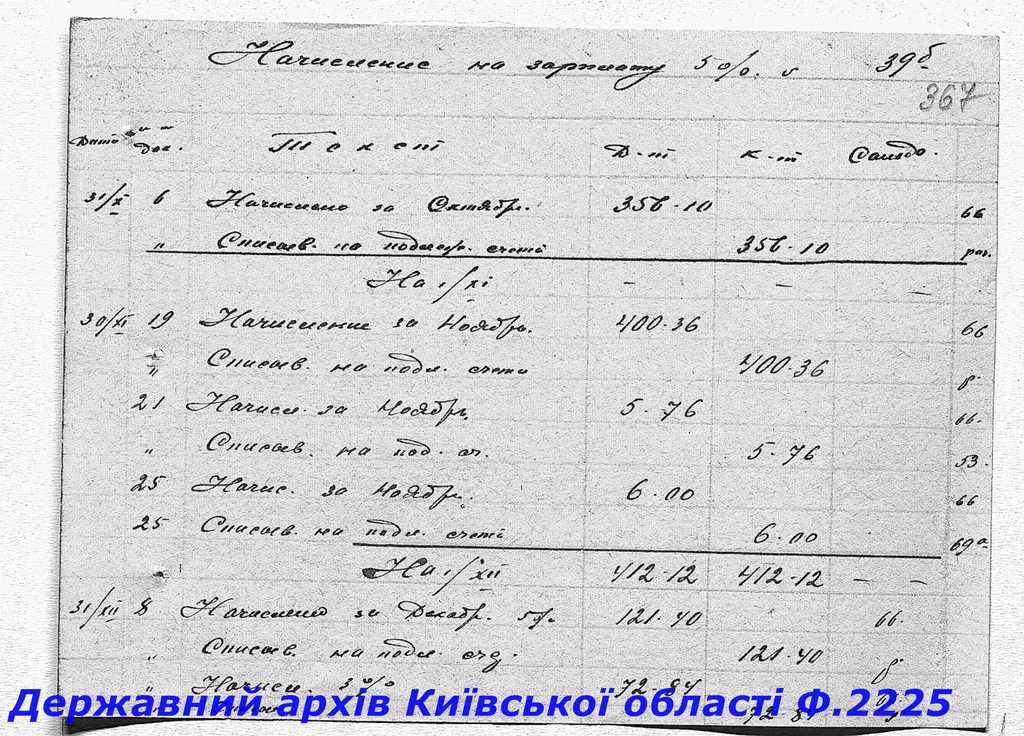 Начисление на зарплату 5 %. 39б
367
Дата док. Текст Д-т К-т Сальдо.
31/X 6 Начислено за Октябрь. 356-10 66
" Списыв. на подлеж. счета 356-10 раз.
На 1/XI — — —
30/XI 19 Начисление за Ноябрь. 400-36 66
" Списыв. на подл. счета 400-36
21 Начисл. за Ноябрь. 5-76 66.
" Списыв. на под. сч. 5-76 53.
25 Начис. за Ноябрь. 6-00 66
25 Списыв. на подл. счета 6-00 69а
На 1/XII 412-12 412-12 — —
31/XII 8 Начислено за Декабр. 121-40 66.
" Списыв. на подл. 121-40
" Начисл. 3% 72-84
72-84
Державний архів Київської області Ф.2225